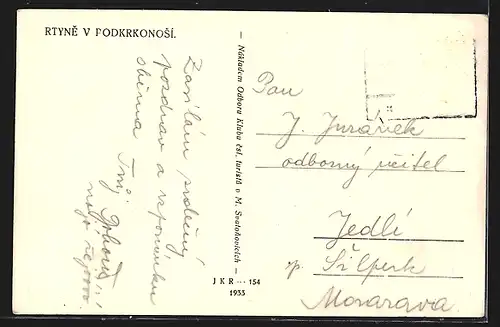 RTYNĚ V PODKRKONOŠÍ.
Zasílám srdečný
pozdrav a vzpomínku
Tvůj
— Nákladem Odboru Klubu čsl. turistů v M. Svatoňovicích —
JKR — 154
1933
Pan
J. Juránek
odborný učitel
Jedlí
p. Šilperk
Morarava.